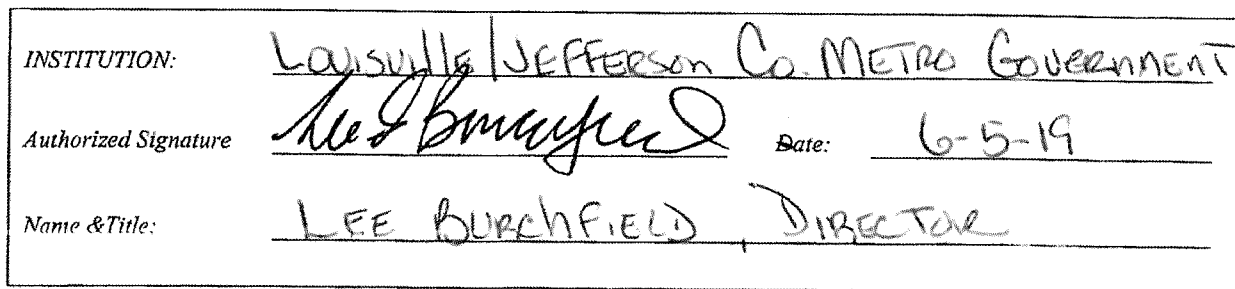 INSTITUTION: Louisville/Jefferson Co. Metro Government
Authorized Signature Lee Burchfield Date: 6-5-19
Name & Title: LEE BURCHFIELD, DIRECTOR